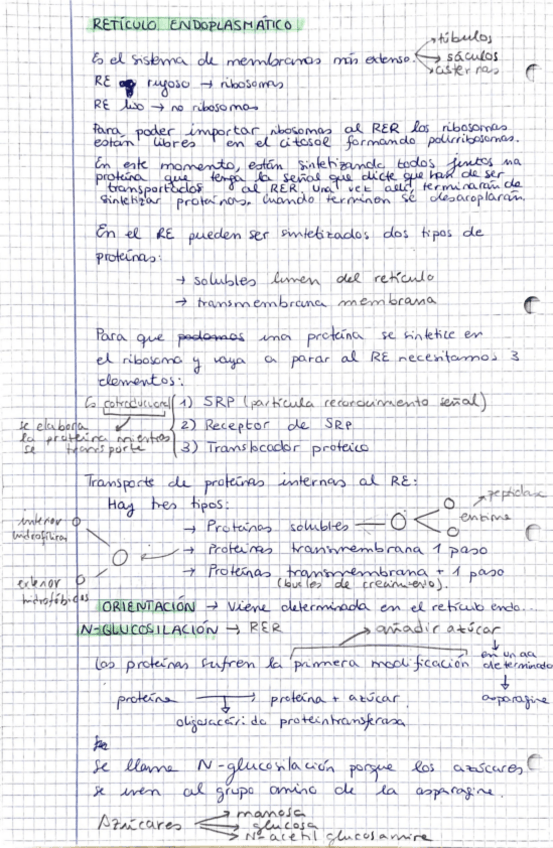 RETÍCULO ENDOPLASMÁTICO
Es el sistema de membranas más extenso. → túbulos
→ sáculos
→ cisternas
RE rugoso → ribosomas
RE liso → no ribosomas
Para poder importar ribosomas al RER los ribosomas
están libres en el citosol formando polirribosomas.
En este momento, están sintetizando todos juntos una
proteína que tenga la señal que dicte que han de ser
transportados al RER, una vez allí, terminarán de
sintetizar proteínas, cuando terminen se desacoplarán.
En el RE pueden ser sintetizados dos tipos de
proteínas:
→ solubles lumen del retículo
→ transmembrana membrana
Para que podamos una proteína se sintetice en
el ribosoma y vaya a parar al RE necesitamos 3
elementos:
Es cotraduccional
1) SRP (partícula reconocimiento señal)
2) Receptor de SRP
3) Translocador proteico
se elabora
la proteína mientras
se transporte
Transporte de proteínas internas al RE:
Hay tres tipos:
→ Proteínas solubles
→ peptidasa
enzima
→ Proteínas transmembrana 1 paso
→ Proteínas transmembrana + 1 paso
(bucles de crecimiento).
interior
hidrofílica
exterior
hidrofóbicos
ORIENTACIÓN → Viene determinada en el retículo endo...
N-GLUCOSILACIÓN → RER
→ añadir azúcar
Las proteínas sufren la primera modificación
en un aa
determinado
↓
asparagina
proteína → proteína + azúcar
↓
oligosacárido proteintransferasa
Se llama N-glucosilación porque los azúcares
se unen al grupo amino de la asparagina.
Azúcares → manosa
→ glucosa
→ N-acetil glucosamina